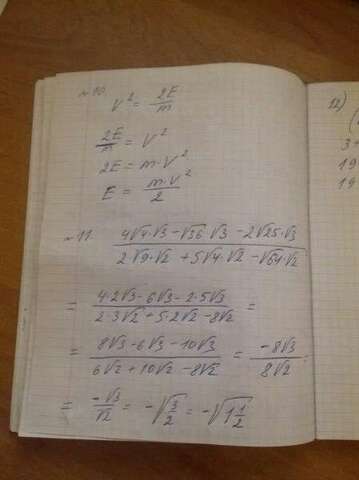 №10 V² = 2E/m
2E/m = V²
2E = m·V²
E = m·V²/2
№11 (4√4·√3 - √36·√3 - 2√25·√3)/(2√9·√2 + 5√4·√2 - √64·√2)
= (4·2√3 - 6√3 - 2·5√3)/(2·3√2 + 5·2√2 - 8√2) =
= (8√3 - 6√3 - 10√3)/(6√2 + 10√2 - 8√2) = -8√3/8√2 =
= -√3/√2 = -√(3/2) = -√(1 1/2)
12)
(
3+
19
19